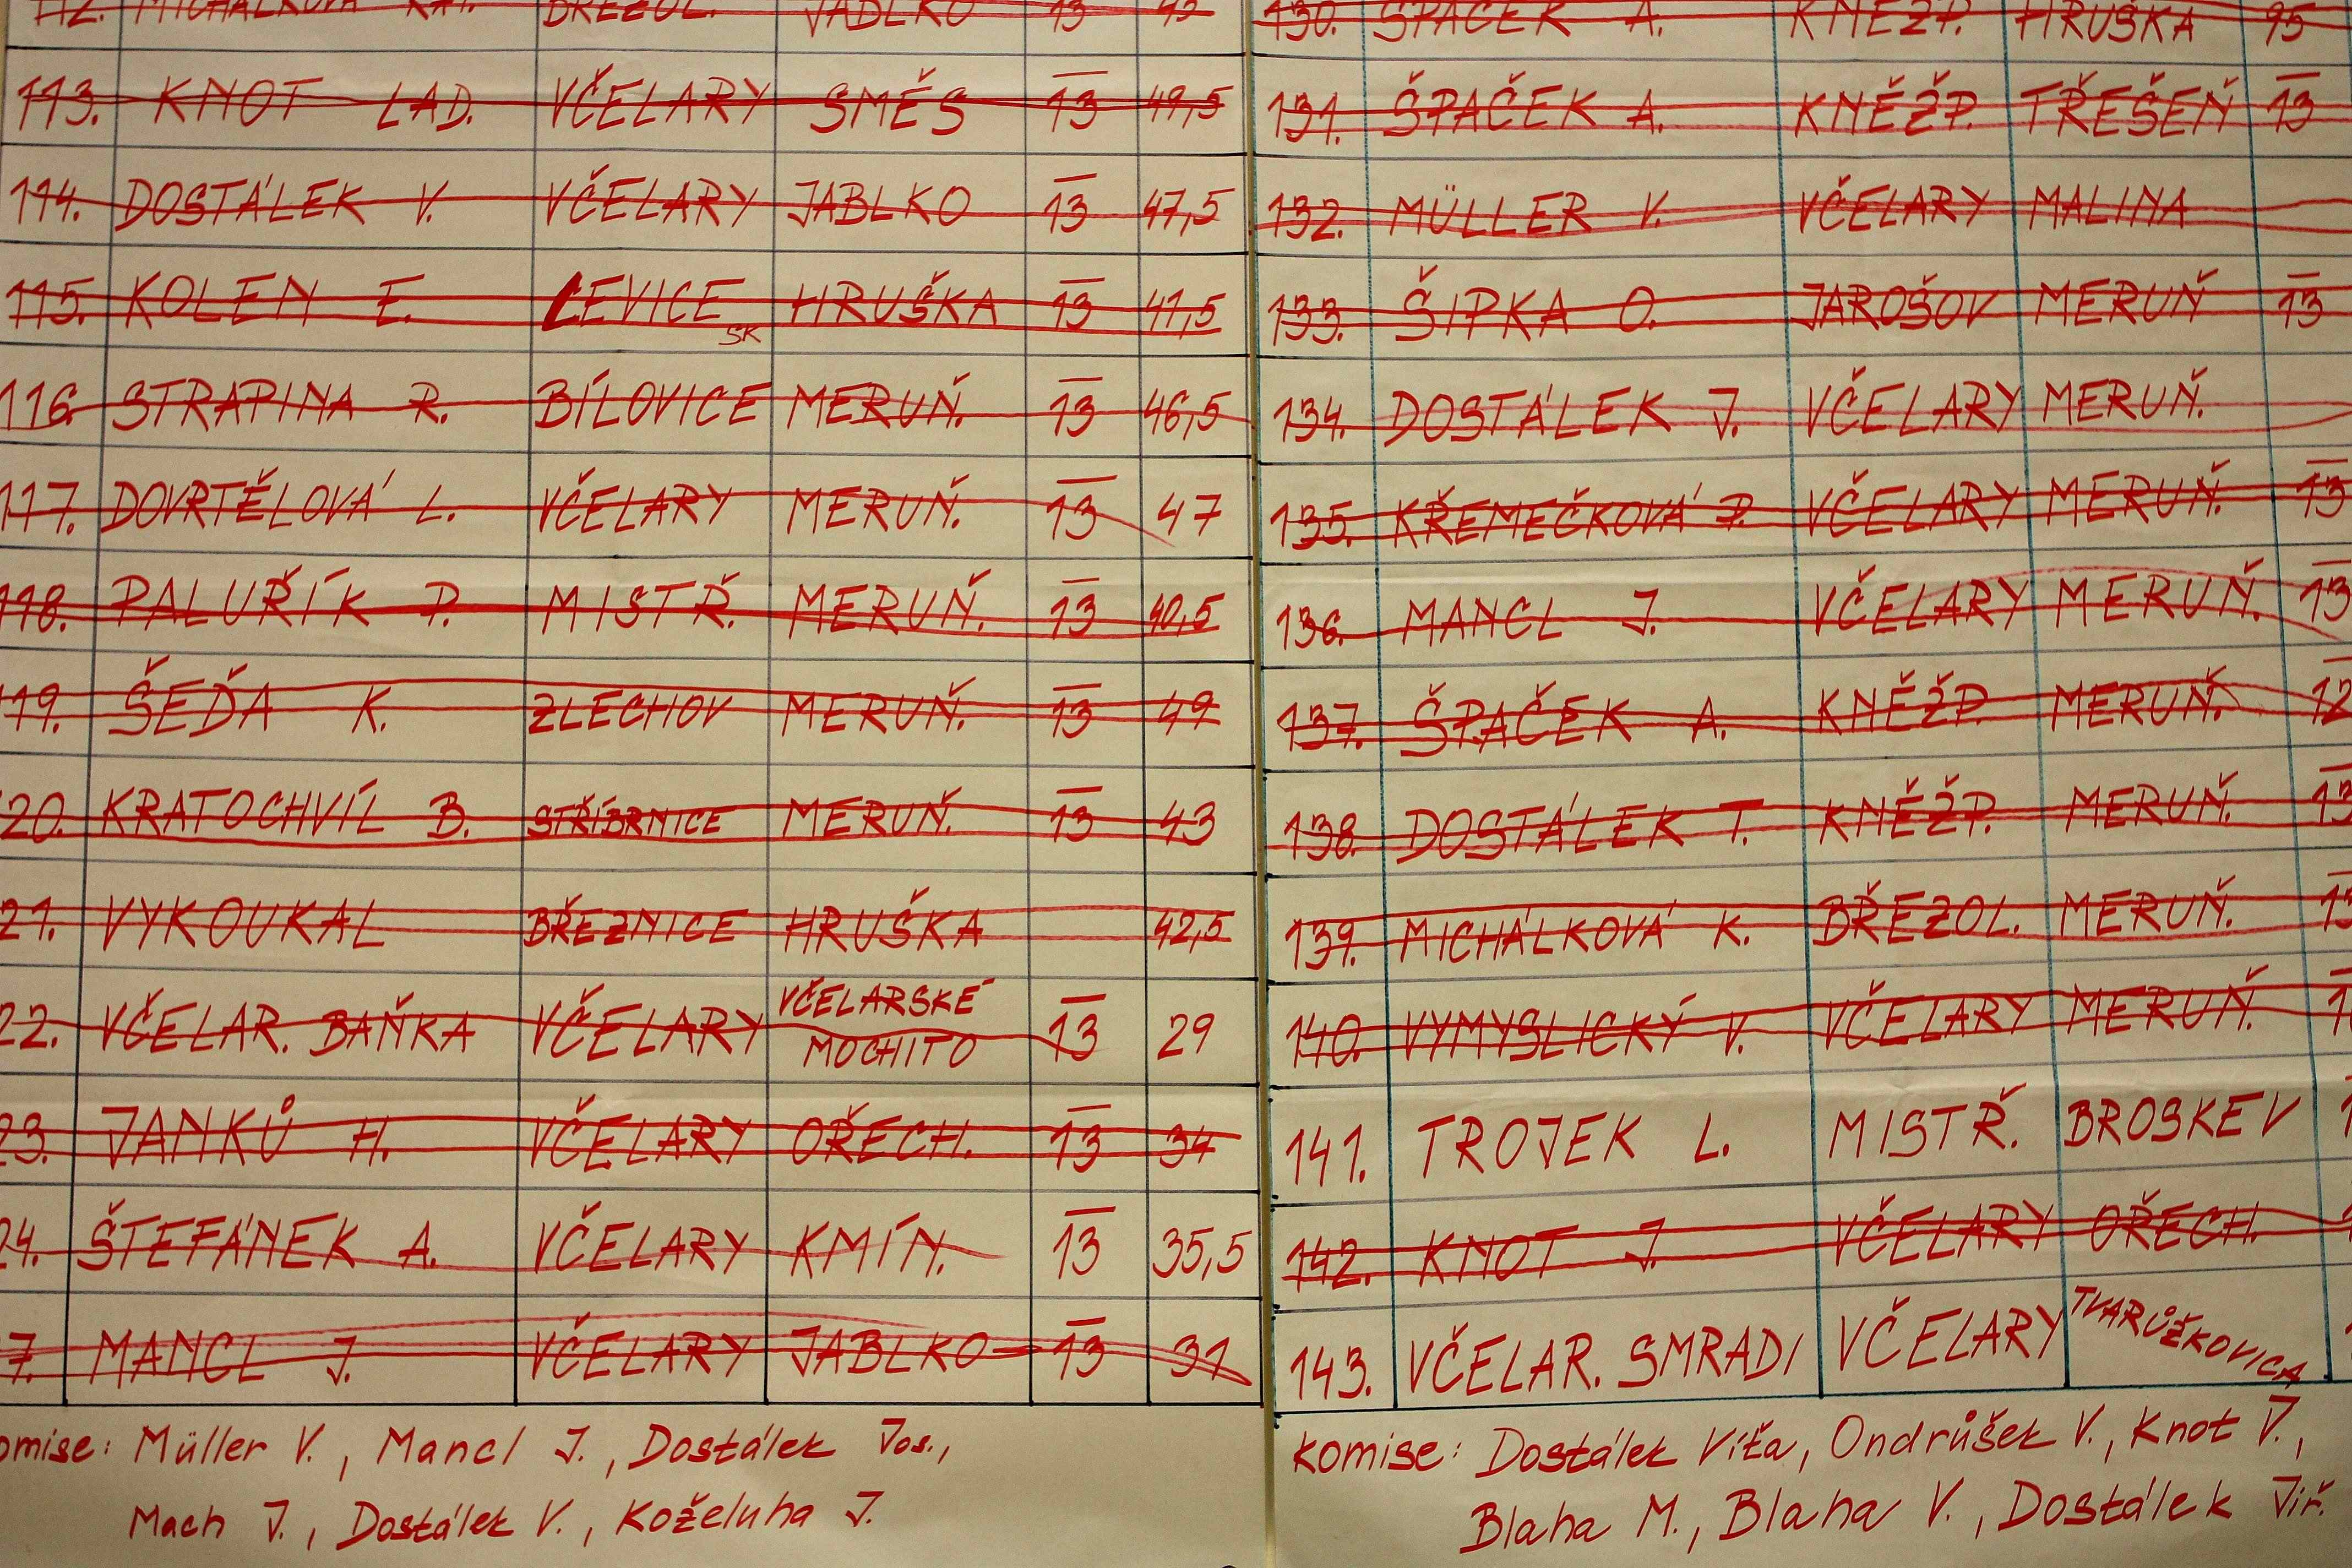 112. MICHÁLKOVÁ KAT. BŘEZOL. JABLKO 13
113. KNOT LAD. VČELARY SMĚS 13 49,5
114. DOSTÁLEK V. VČELARY JABLKO 13 47,5
115. KOLEN E. LEVICE SK HRUŠKA 13 41,5
116. STRAPINA R. BÍLOVICE MERUŇ. 13 46,5
117. DOVRTĚLOVÁ L. VČELARY MERUŇ. 13 47
118. PALUŘÍK P. MISTŘ. MERUŇ. 13 40,5
119. ŠEĎA K. ZLECHOV MERUŇ. 13 49
20. KRATOCHVÍL B. STŘÍBRNICE MERUŇ. 13 43
21. VYKOUKAL BŘEZNICE HRUŠKA 42,5
22. VČELAR. BAŇKA VČELARY VČELARSKÉ MOCHITO 13 29
23. JANKŮ H. VČELARY OŘECH. 13 34
24. ŠTEFÁNEK A. VČELARY KMÍN. 13 35,5
7. MANCL J. VČELARY JABLKO 13 31
omise: Müller V., Mancl J., Dostálek Jos.,
Mach J., Dostálek V., Koželuha J.
130. ŠPAČEK A. KNĚŽP. HRUŠKA 95
131. ŠPAČEK A. KNĚŽP. TŘEŠEŇ 13
132. MÜLLER V. VČELARY MALINA
133. ŠIPKA O. JAROŠOV MERUŇ 13
134. DOSTÁLEK J. VČELARY MERUŇ.
135. KŘEMEČKOVÁ P. VČELARY MERUŇ. 13
136. MANCL J. VČELARY MERUŇ. 13
137. ŠPAČEK A. KNĚŽP. MERUŇ. 12
138. DOSTÁLEK T. KNĚŽP. MERUŇ. 13
139. MICHÁLKOVÁ K. BŘEZOL. MERUŇ.
140. VYMYSLICKÝ V. VČELARY MERUŇ.
141. TROJEK L. MISTŘ. BROSKEV
142. KNOT J. VČELARY OŘECH.
143. VČELAR. SMRADI VČELARY TVARŮŽKOVICA
komise: Dostálek Víťa, Ondrůšek V., Knot J.,
Blaha M., Blaha V., Dostálek Jiř.